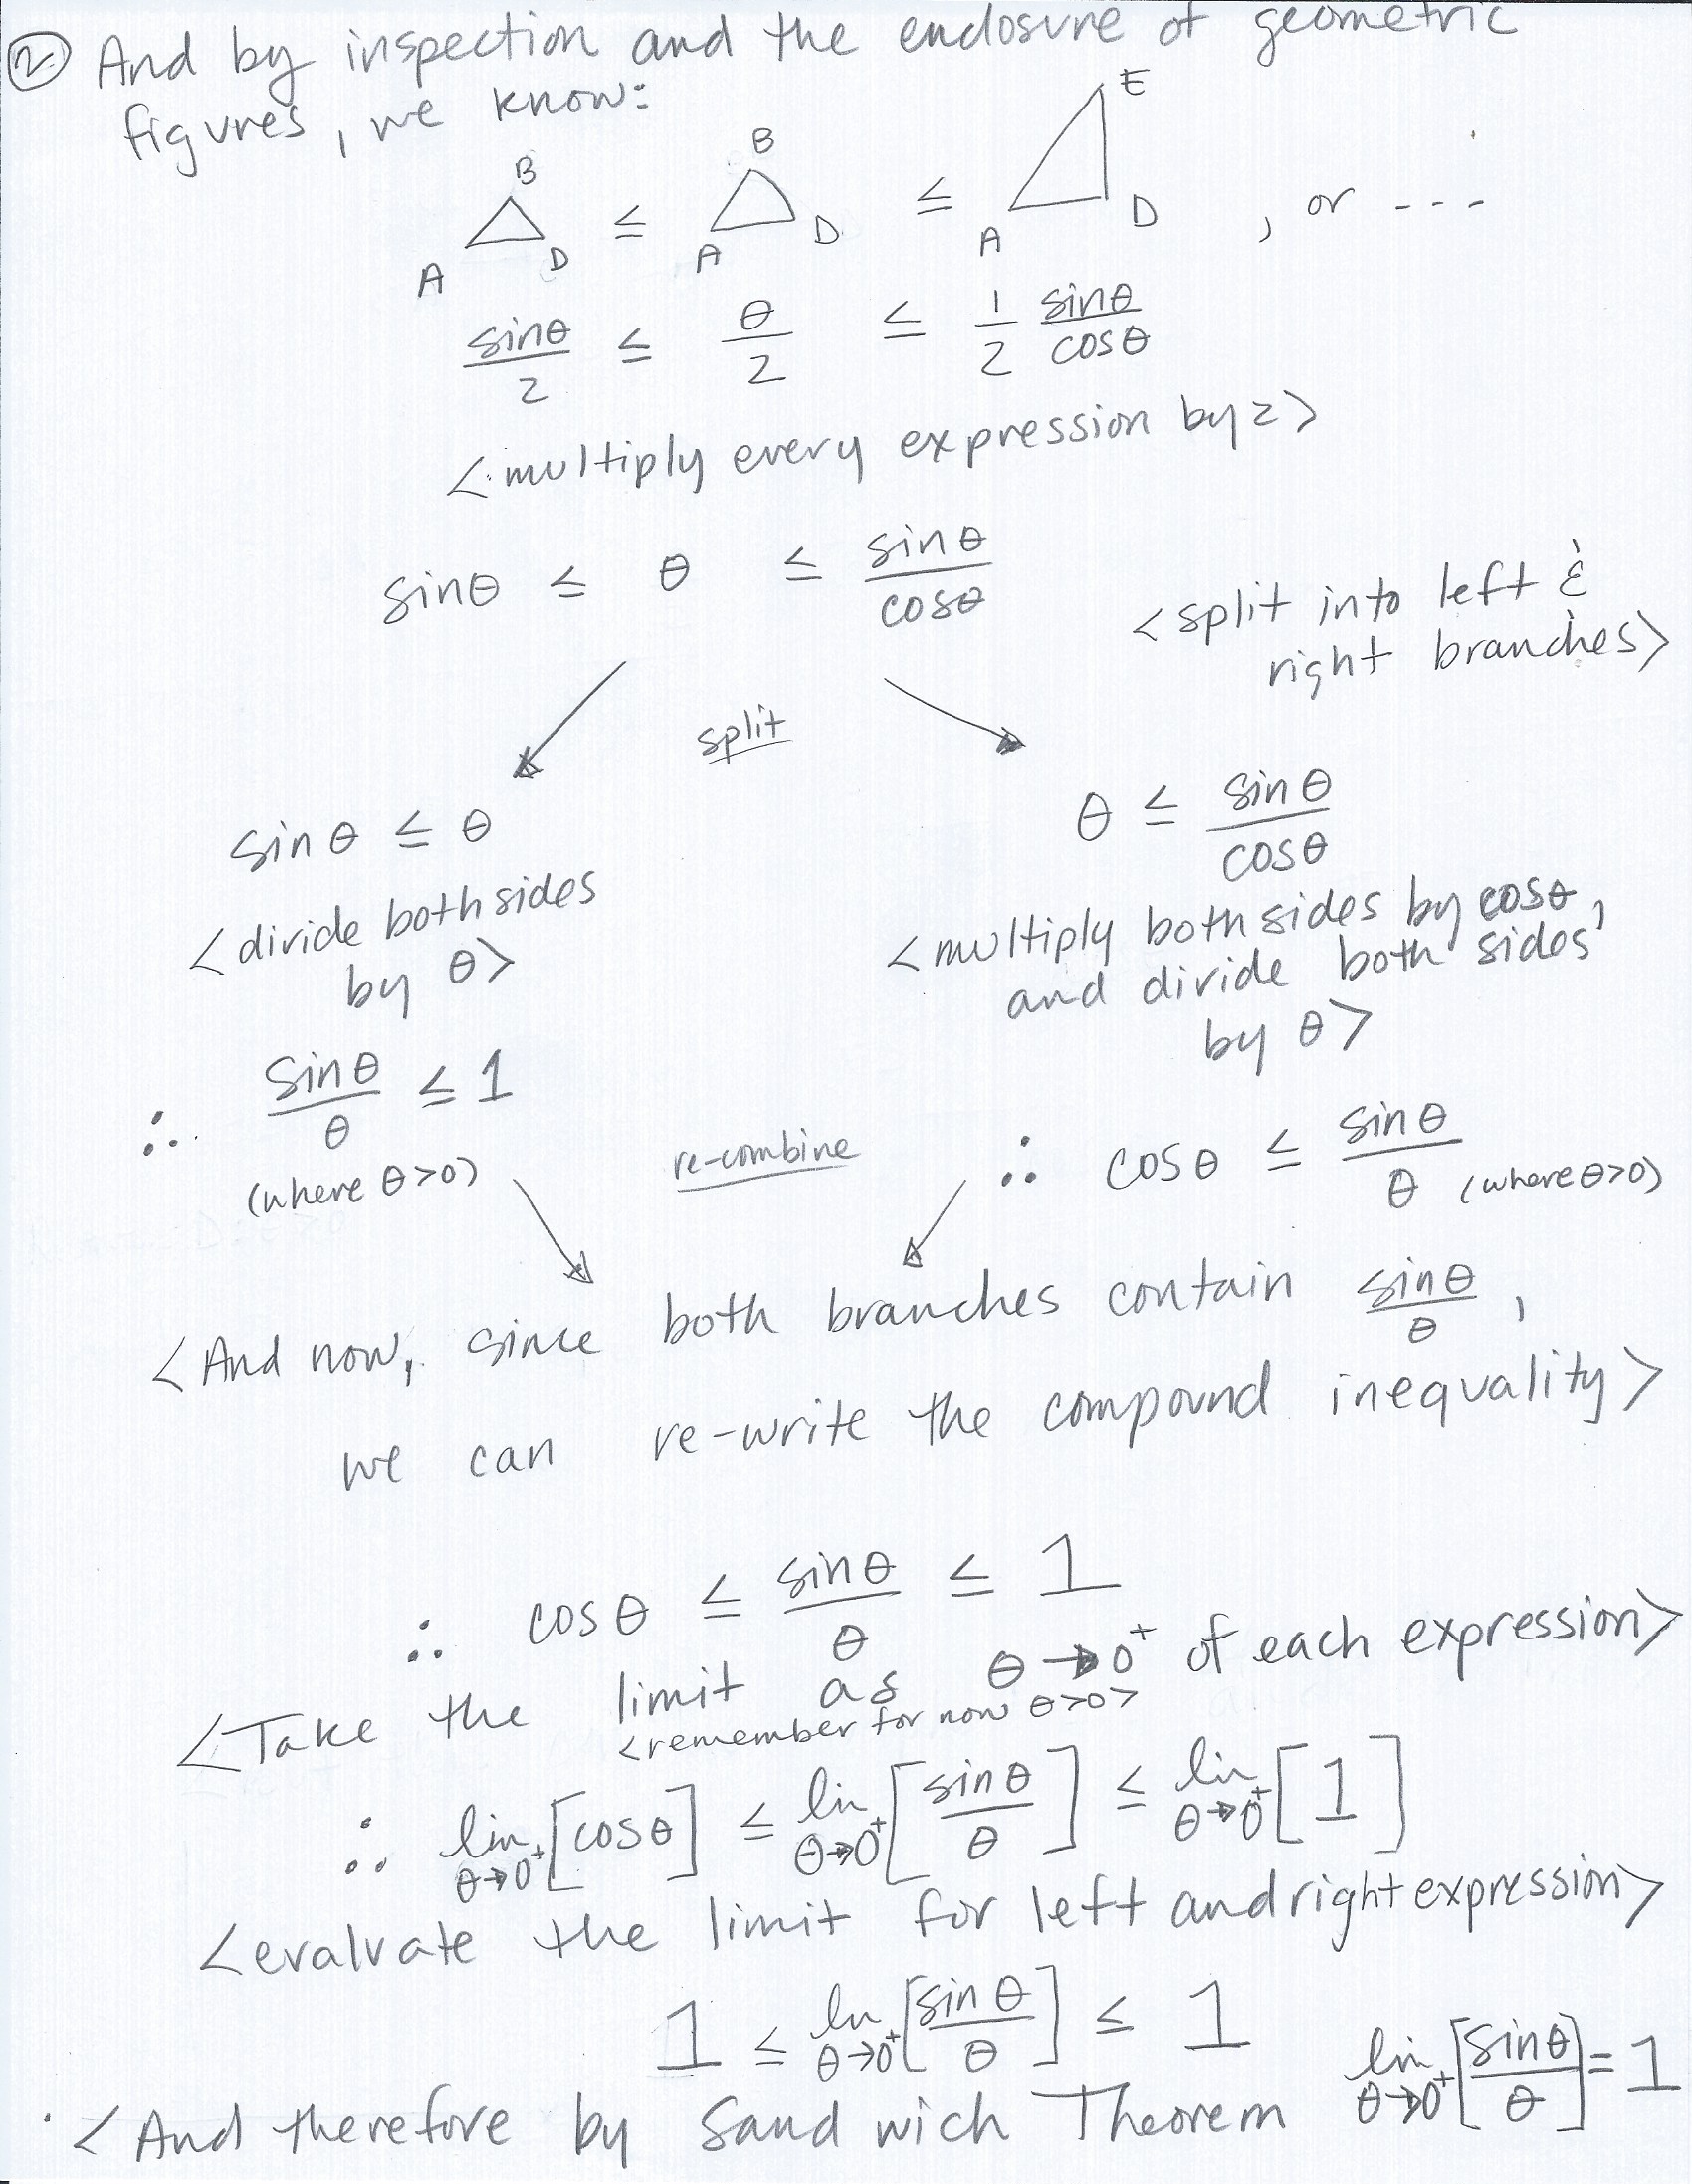 ② And by inspection and the enclosure of geometric
figures, we know:
B B E
≤ ≤ , or ---
A D A D A D
sinθ/2 ≤ θ/2 ≤ 1/2 sinθ/cosθ
<multiply every expression by 2>
sinθ ≤ θ ≤ sinθ/cosθ
<split into left &
right branches>
split
sinθ ≤ θ
θ ≤ sinθ/cosθ
<divide both sides
by θ>
<multiply both sides by cosθ,
and divide both sides
by θ>
∴ sinθ/θ ≤ 1
(where θ>0)
re-combine
∴ cosθ ≤ sinθ/θ (where θ>0)
<And now, since both branches contain sinθ/θ,
we can re-write the compound inequality>
∴ cosθ ≤ sinθ/θ ≤ 1
<Take the limit as θ→0⁺ of each expression>
<remember for now θ>0>
∴ lim θ→0⁺ [cosθ] ≤ lim θ→0⁺ [sinθ/θ] ≤ lim θ→0⁺ [1]
<evaluate the limit for left and right expression>
1 ≤ lim θ→0⁺ [sinθ/θ] ≤ 1
<And therefore by Sandwich Theorem lim θ→0⁺ [sinθ/θ] = 1